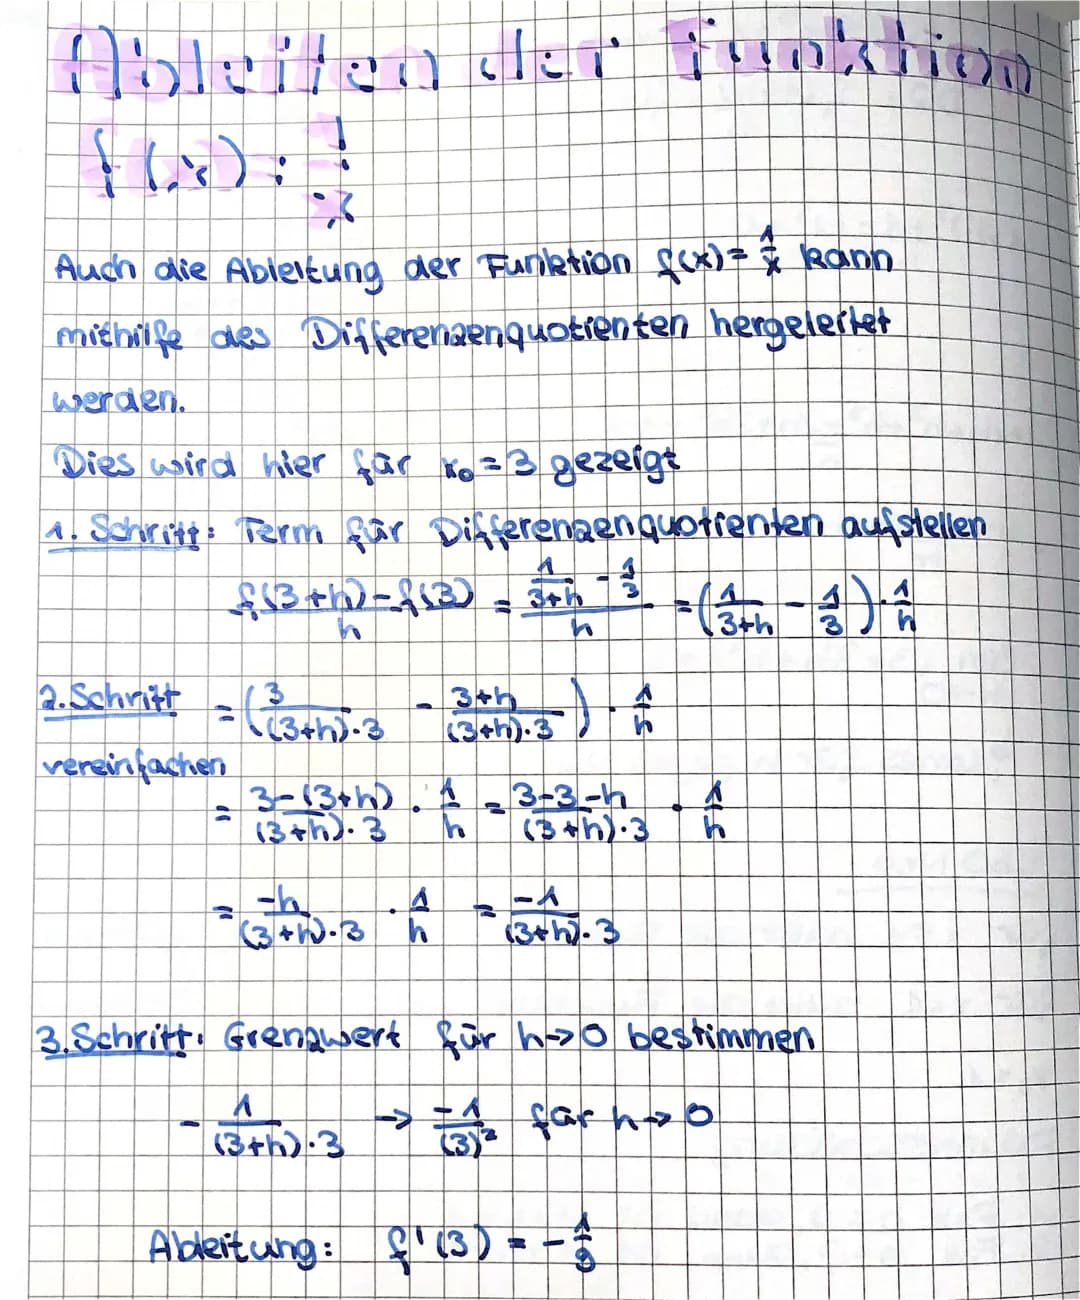 Ableiten der Funktion
f(x) = 1/x
Auch die Ableitung der Funktion f(x) = 1/x kann
mithilfe des Differenzenquotienten hergeleitet
werden.
Dies wird hier für x₀ = 3 gezeigt
1. Schritt: Term für Differenzenquotienten aufstellen
(f(3+h)-f(3))/h = (1/(3+h) - 1/3)/h = (1/(3+h) - 1/3) · 1/h
2. Schritt = (3/((3+h)·3) - (3+h)/((3+h)·3)) · 1/h
vereinfachen
= (3-(3+h))/((3+h)·3) · 1/h = (3-3-h)/((3+h)·3) · 1/h
= -h/((3+h)·3) · 1/h = -1/((3+h)·3)
3. Schritt: Grenzwert für h→0 bestimmen
- 1/((3+h)·3) → -1/(3)² für h→0
Ableitung: f'(3) = -1/9